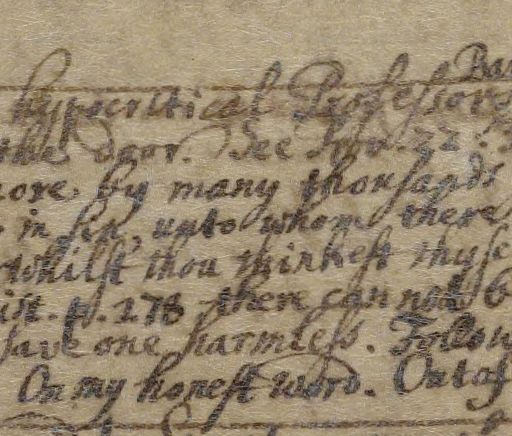 hypocritical Professors
the door. See Prov. 22.
more by many thousands
in sin, unto whom there
whilst thou thinkest thyse
ist. p. 278 there can not b
save one harmless. Follow
On my honest word.